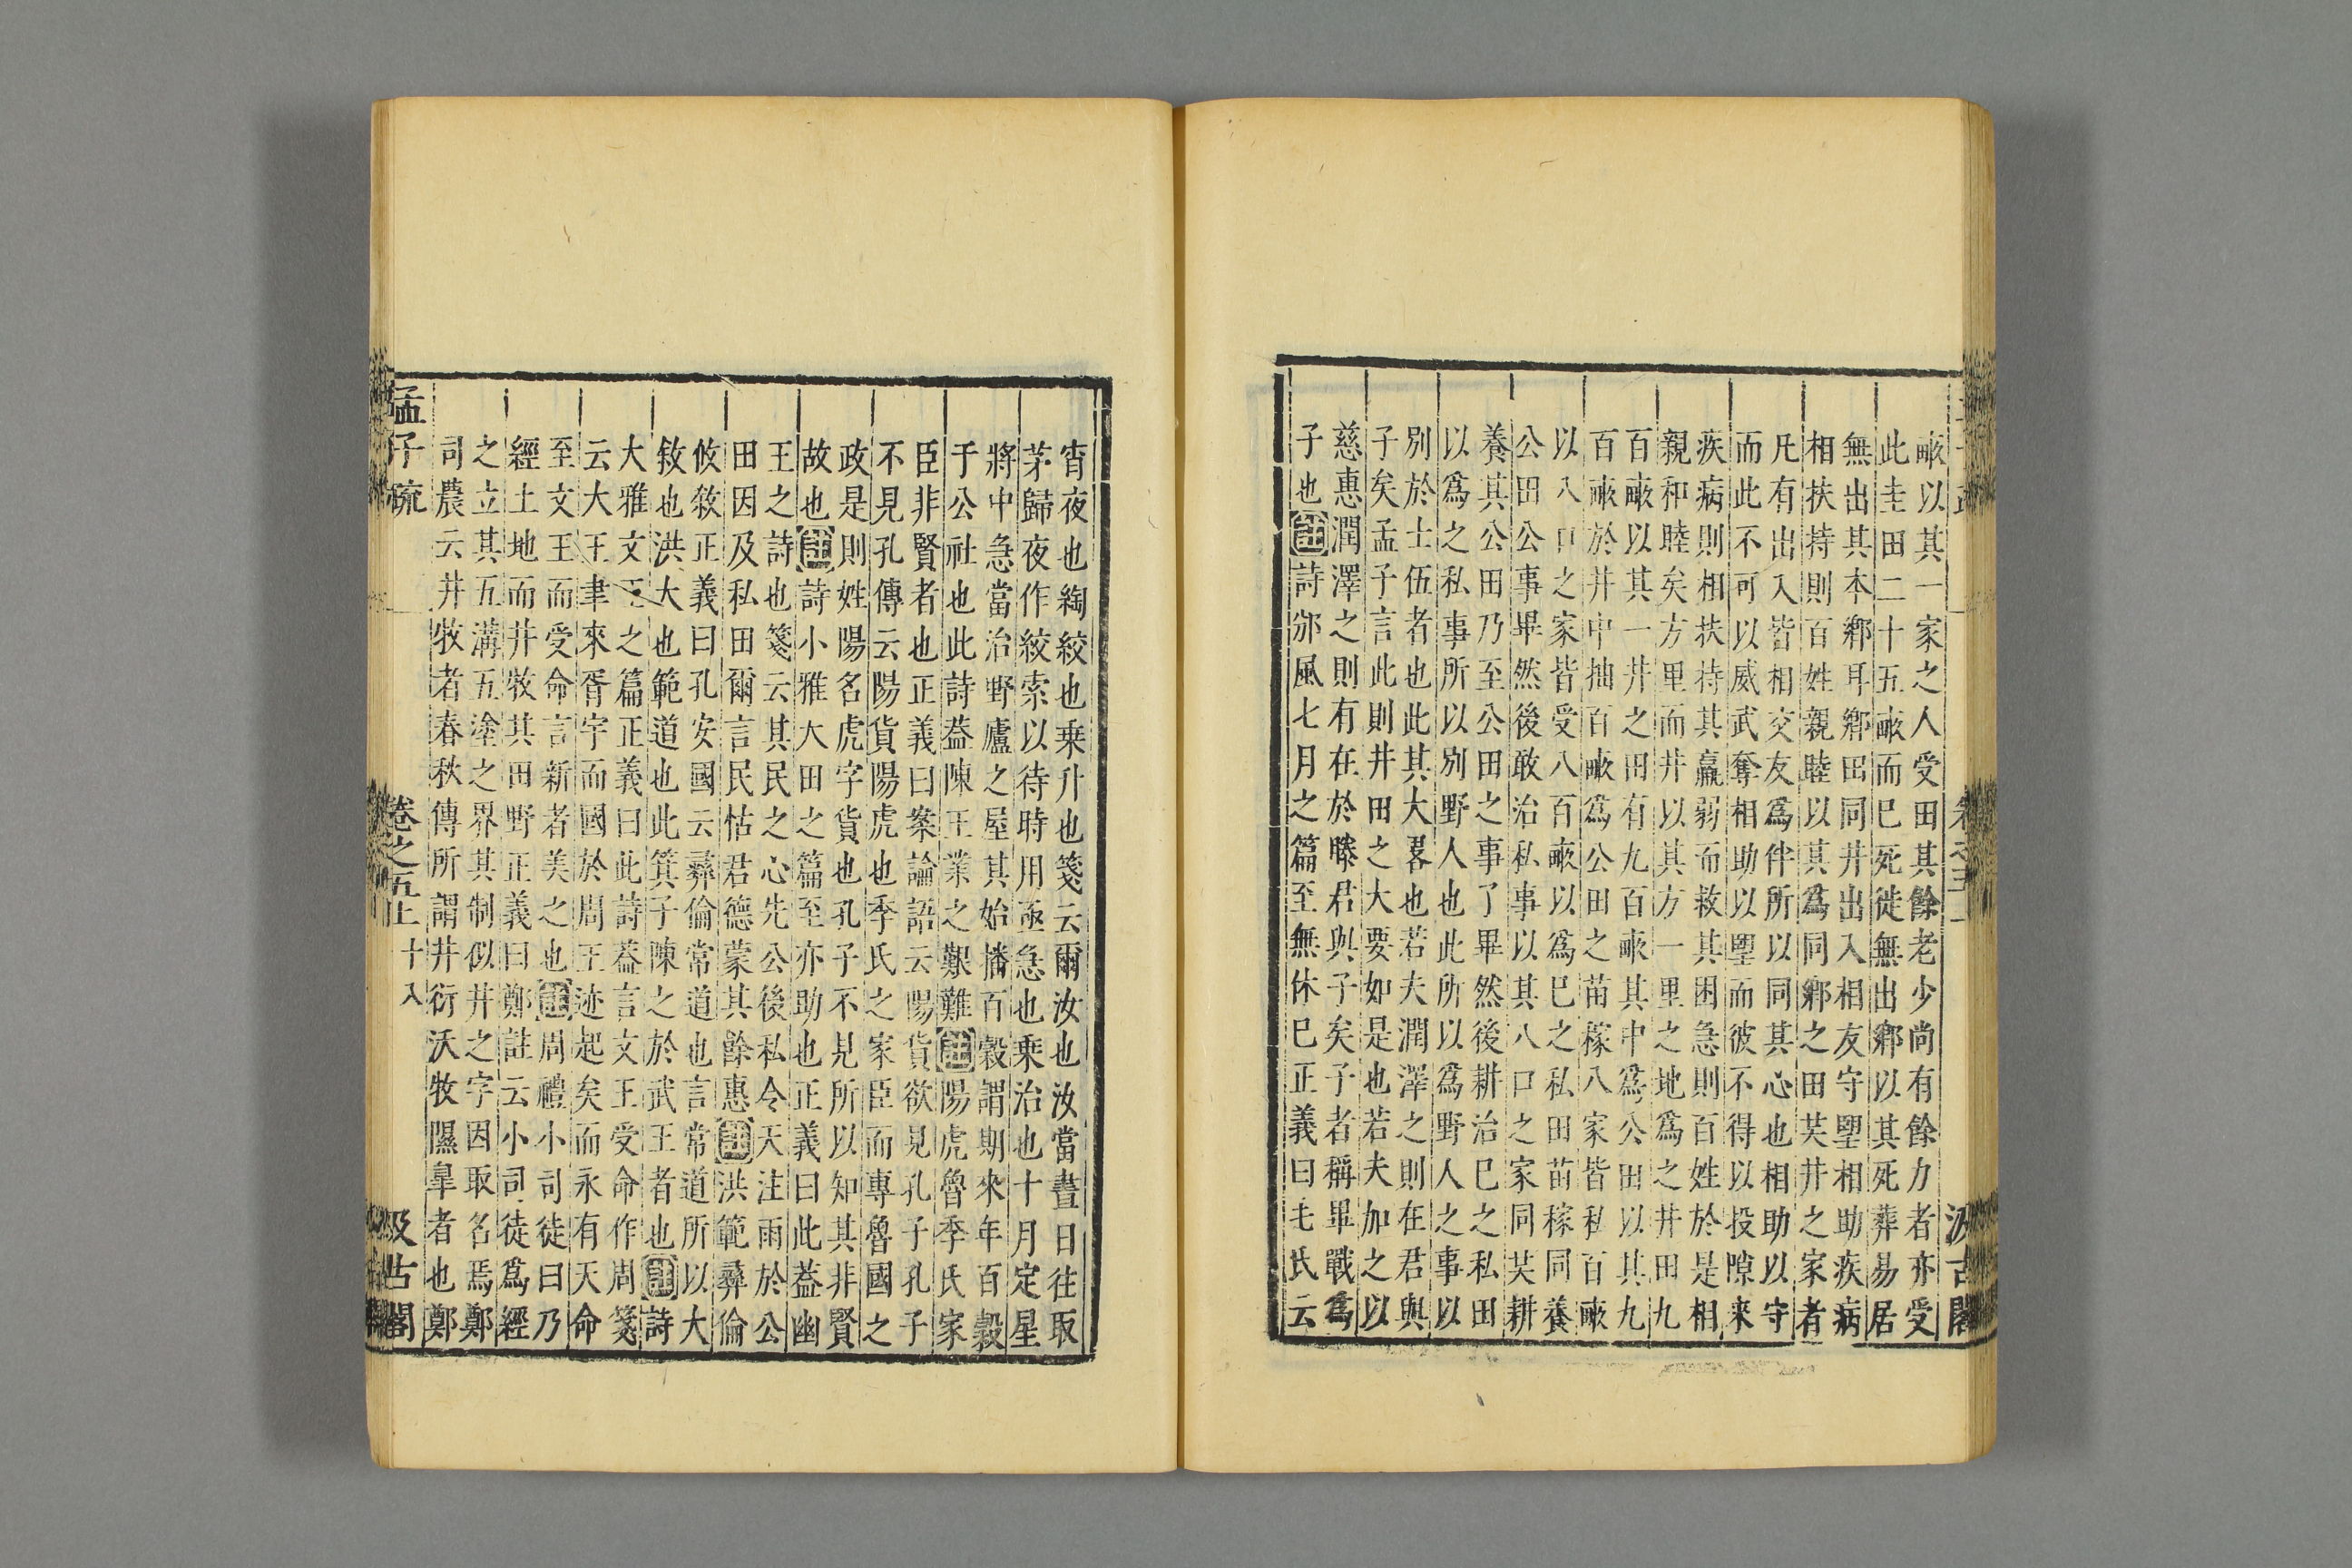 畞以其一家之人受田其餘老少尚有餘力者亦受
此圭田二十五畞而巳死徙無出鄉以其死葬易居
無出其本鄉耳鄉田同井出入相友守望相助疾病
相扶持則百姓親睦以其爲同鄉之田共井之家者
凡有出入皆相交友爲伴所以同其心也相助以守
而此不可以威武奪相助以望而彼不得以投隙來
疾病則相扶持其羸弱而救其困急則百姓於是相
親和睦矣方里而井以其方一里之地爲之井田九
百畞以其一井之田有九百畞其中爲公田以其九
百畞於井中抽百畞爲公田之苗稼八家皆私百畞
以八口之家皆受八百畞以爲巳之私田苗稼同養
公田公事畢然後敢治私事以其八口之家同共耕
養其公田乃至公田之事了畢然後耕治巳之私田
以爲之私事所以別野人也此所以爲野人之事以
別於士伍者也此其大畧也若夫潤澤之則在君與
子矣孟子言此則井田之大要如是也若夫加之以
慈惠潤澤之則有在於滕君與子矣子者稱畢戰爲
子也註詩邠風七月之篇至無休巳正義曰毛氏云
宵夜也綯絞也乗升也箋云爾汝也汝當晝日往取
茅歸夜作絞索以待時用亟急也乗治也十月定星
將中急當治野廬之屋其始播百榖謂期來年百榖
于公社也此詩葢陳王業之艱難註陽虎魯季氏家
臣非賢者也正義曰案論語云陽貨欲見孔子孔子
不見孔傳云陽貨陽虎也季氏之家臣而專魯國之
政是則姓陽名虎字貨也孔子不見所以知其非賢
故也註詩小雅大田之篇至亦助也正義曰此葢幽
王之詩也箋云其民之心先公後私令天注雨於公
田因及私田爾言民怙君德蒙其餘惠註洪範彛倫
攸敘正義曰孔安國云彛倫常道也言常道所以大
敘也洪大也範道也此箕子陳之於武王者也註詩
大雅文王之篇正義曰此詩葢言文王受命作周箋
云大王聿來胥宇而國於周王迹起矣而永有天命
至文王而受命言新者美之也註周禮小司徒曰乃
經土地而井牧其田野正義曰鄭註云小司徒爲經
之立其五溝五塗之界其制似井之字因取名焉鄭
司農云井牧者春秋傳所謂井衍沃牧隰臯者也鄭
孟子疏
卷之五上
十八
汲古閣